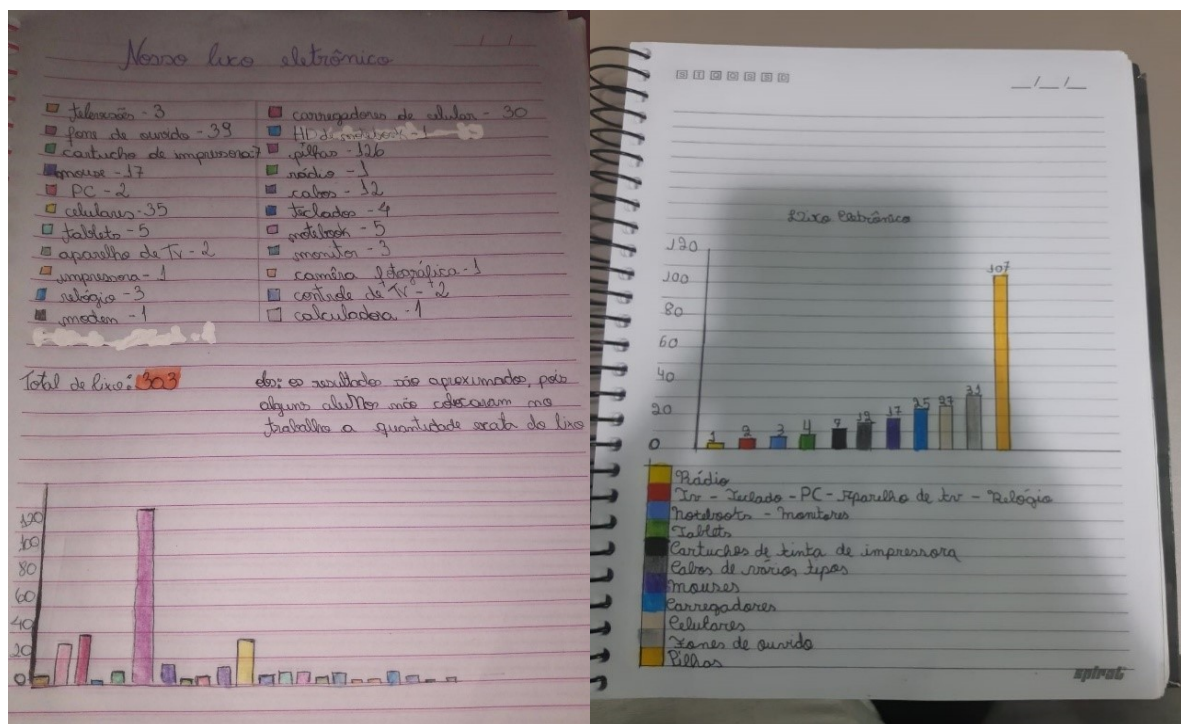 Nosso lixo eletrônico
televisões - 3
fone de ouvido - 39
cartucho de impressora: 7
mouse - 17
PC - 2
celulares - 35
tablets - 5
aparelho de TV - 2
impressora - 1
relógio - 3
modem - 1
carregadores de celular - 30
HD
pilhas - 126
rádio - 1
cabos - 12
teclados - 4
notebook - 5
monitor - 3
camêra fotográfica - 1
controle de TV - 2
calculadora - 1
Total de lixo: 303
obs: os resultados são aproximados, pois
alguns alunos não colocaram no
trabalho a quantidade exata do lixo
120
100
80
60
40
20
0
Lixo Eletrônico
120
100
80
60
40
20
0
1 2 3 4 7 12 17 25 27 107
Rádio
Tv - Teclado - PC - Aparelho de tv - Relógio
Notebooks - Monitores
Tablets
Cartuchos de tinta de impressora
Cabos de vários tipos
mouses
Carregadores
Celulares
Fones de ouvido
Pilhas
spiral